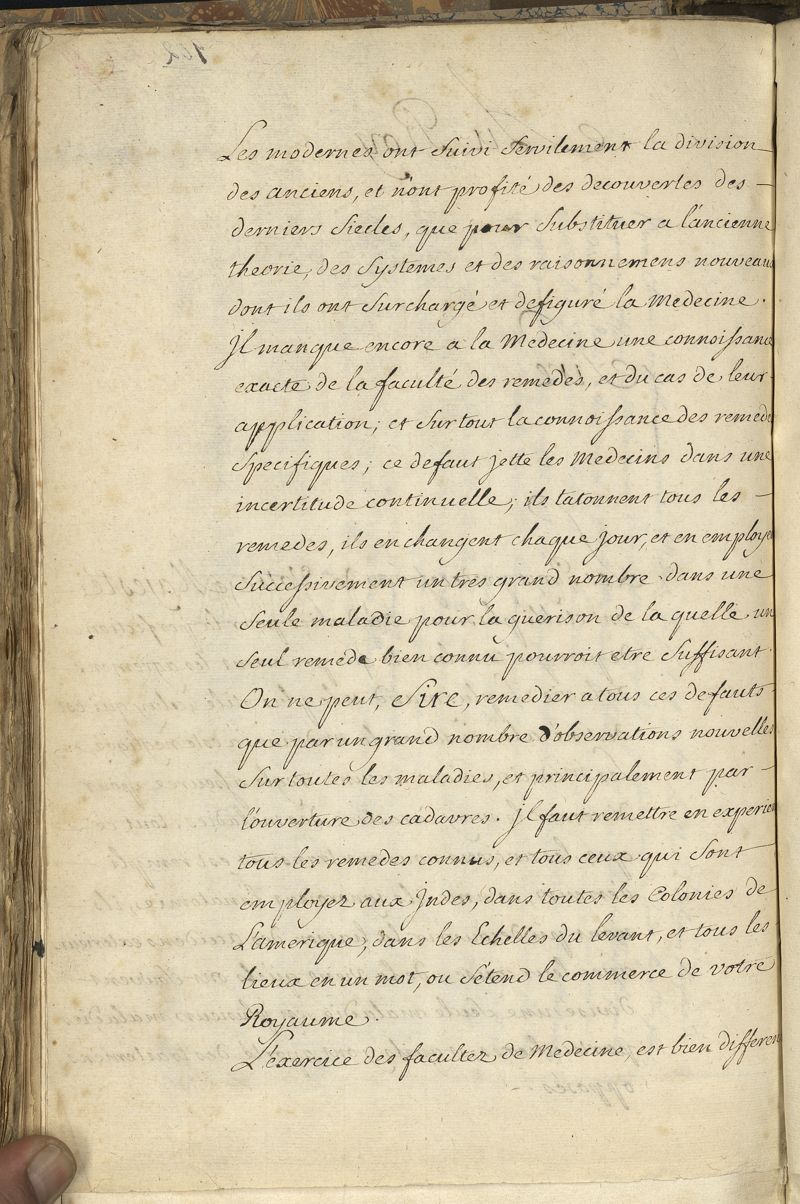 Les modernes ont suivi servilement la division
des anciens, et n'ont profité des decouvertes des
derniers siecles, que pour substituer a l'ancienne
theorie, des systemes et des raisonnemens nouveaux
dont ils ont surchargé et defiguré la Medecine.
Il manque encore a la Medecine une connoissance
exacte de la faculté des remedes, et du cas de leur
application; et surtout la connoissance des remede
specifiques; ce defaut jette les Medecins dans une
incertitude continuelle; ils tatonnent tous les
remedes, ils en changent chaque jour, et en employe
successivement un tres grand nombre dans une
seule maladie pour la guerison de la quelle un
seul remede bien connu pourroit etre suffisant.
On ne peut, Sire, remedier a tous ces defauts
que par un grand nombre d'observations nouvelles
sur toutes les maladies, et principalement par
l'ouverture des cadavres. Il faut remettre en experien
tous les remedes connus, et tous ceux qui sont
employez aux Indes, dans toutes les Colonies de
L'amerique, dans les Echelles du levant, et tous les
lieux en un mot, ou s'étend le commerce de votre
Royaume.
L'exercice des facultez de Medecine, est bien differen